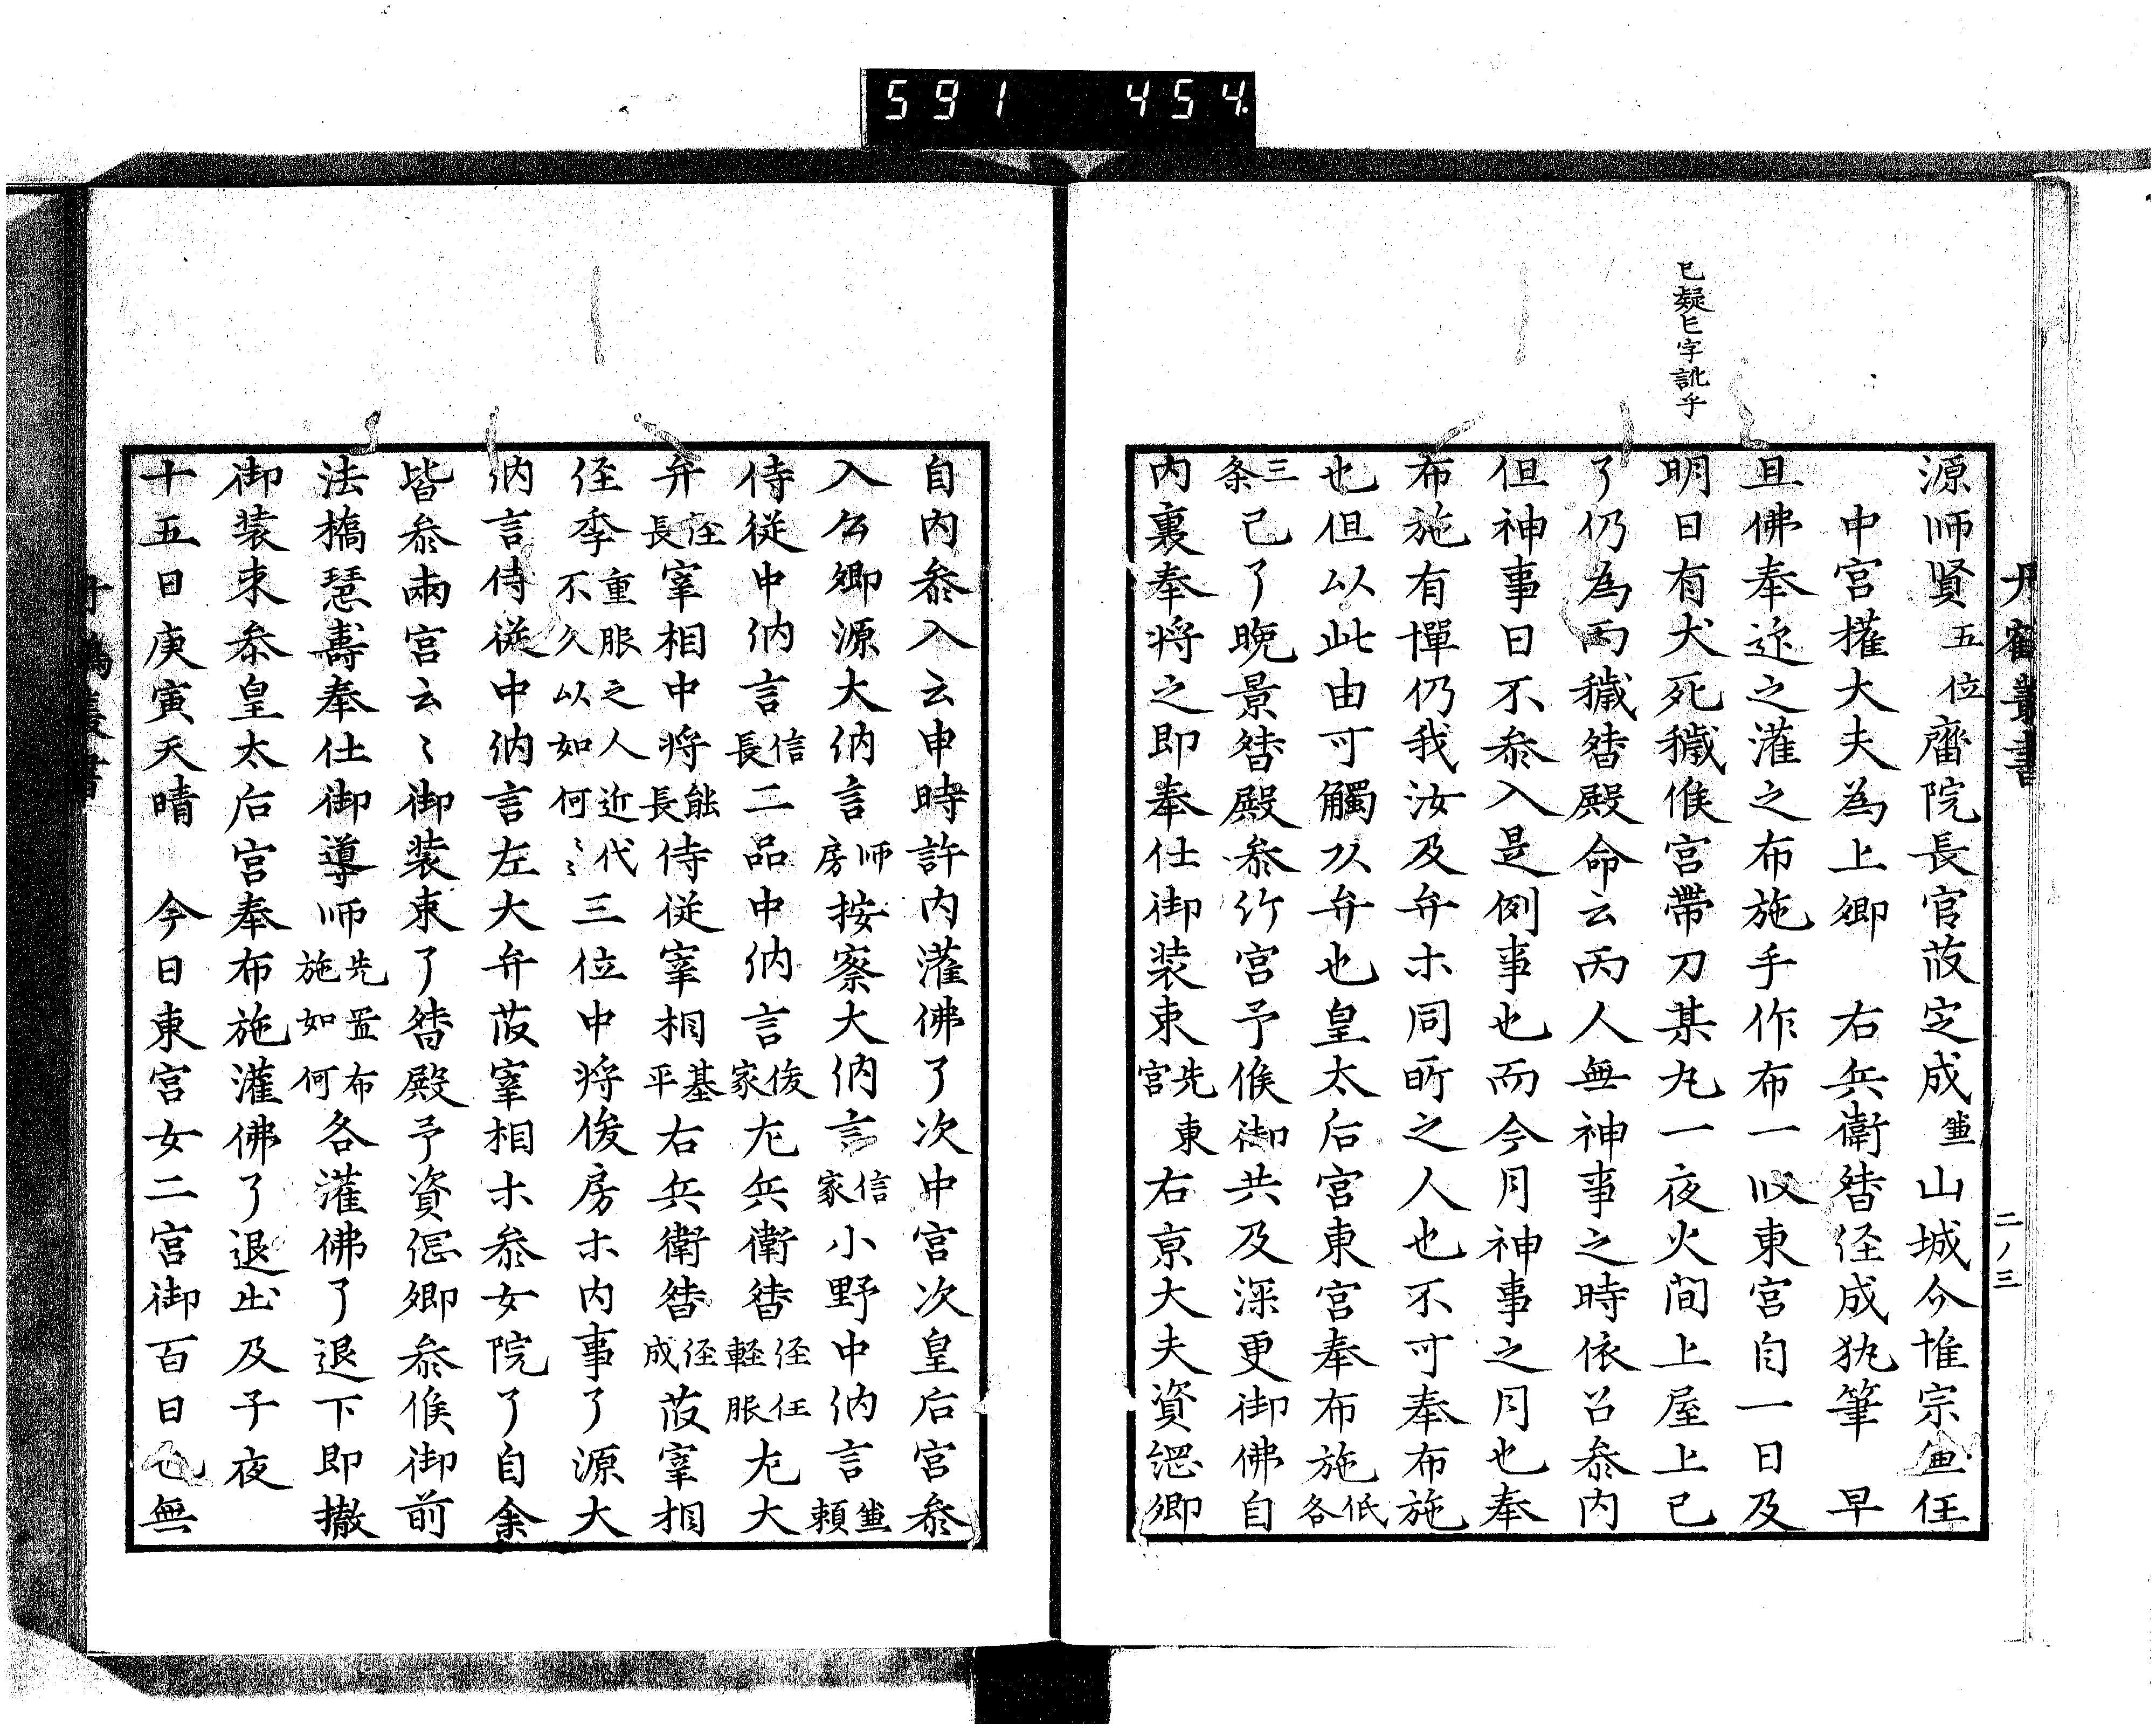 591 454
丹鶴叢書
二ノ三
已疑㔫字訛乎
源师賢五位齋院長官菽定成兼山城今惟宗兼任
中宮權大夫為上卿 右兵衛督経成執筆 早
旦佛奉迎之灌之布施手作布一以東宮自一日及
明日有犬死穢候宮帶刀某丸一夜火間上屋上已
了仍為丙穢督殿命云丙人無神事之時依召参内
但神事日不参入是例事也而今月神事之月也奉
布施有憚仍我汝及弁等同所之人也不可奉布施
也但以此由可觸以弁也皇太后宮東宮奉布施低各
三条己了晩景督殿参竹宮予候御共及深更御佛自
内裏奉将之即奉仕御装束先東宮右京大夫資綱卿
自内参入云申時許内灌佛了次中宮次皇后宮参
入公卿源大納言师房按察大納言信家小野中納言兼頼
侍従中納言信長二品中納言俊家左兵衛督経任軽服左大
弁経長宰相中将能長侍従宰相基平右兵衛督経成菽宰相
経季重服之人近代不久以如何〻〻三位中将俊房等内事了源大
納言侍従中納言左大弁菽宰相等参女院了自余
皆参兩宮云〻御装束了督殿予資綱卿参候御前
法橋琵壽奉仕御導师先置布施如何各灌佛了退下即撤
御装束参皇太后宮奉布施灌佛了退出及子夜
十五日庚寅天晴 今日東宮女二宮御百日也無